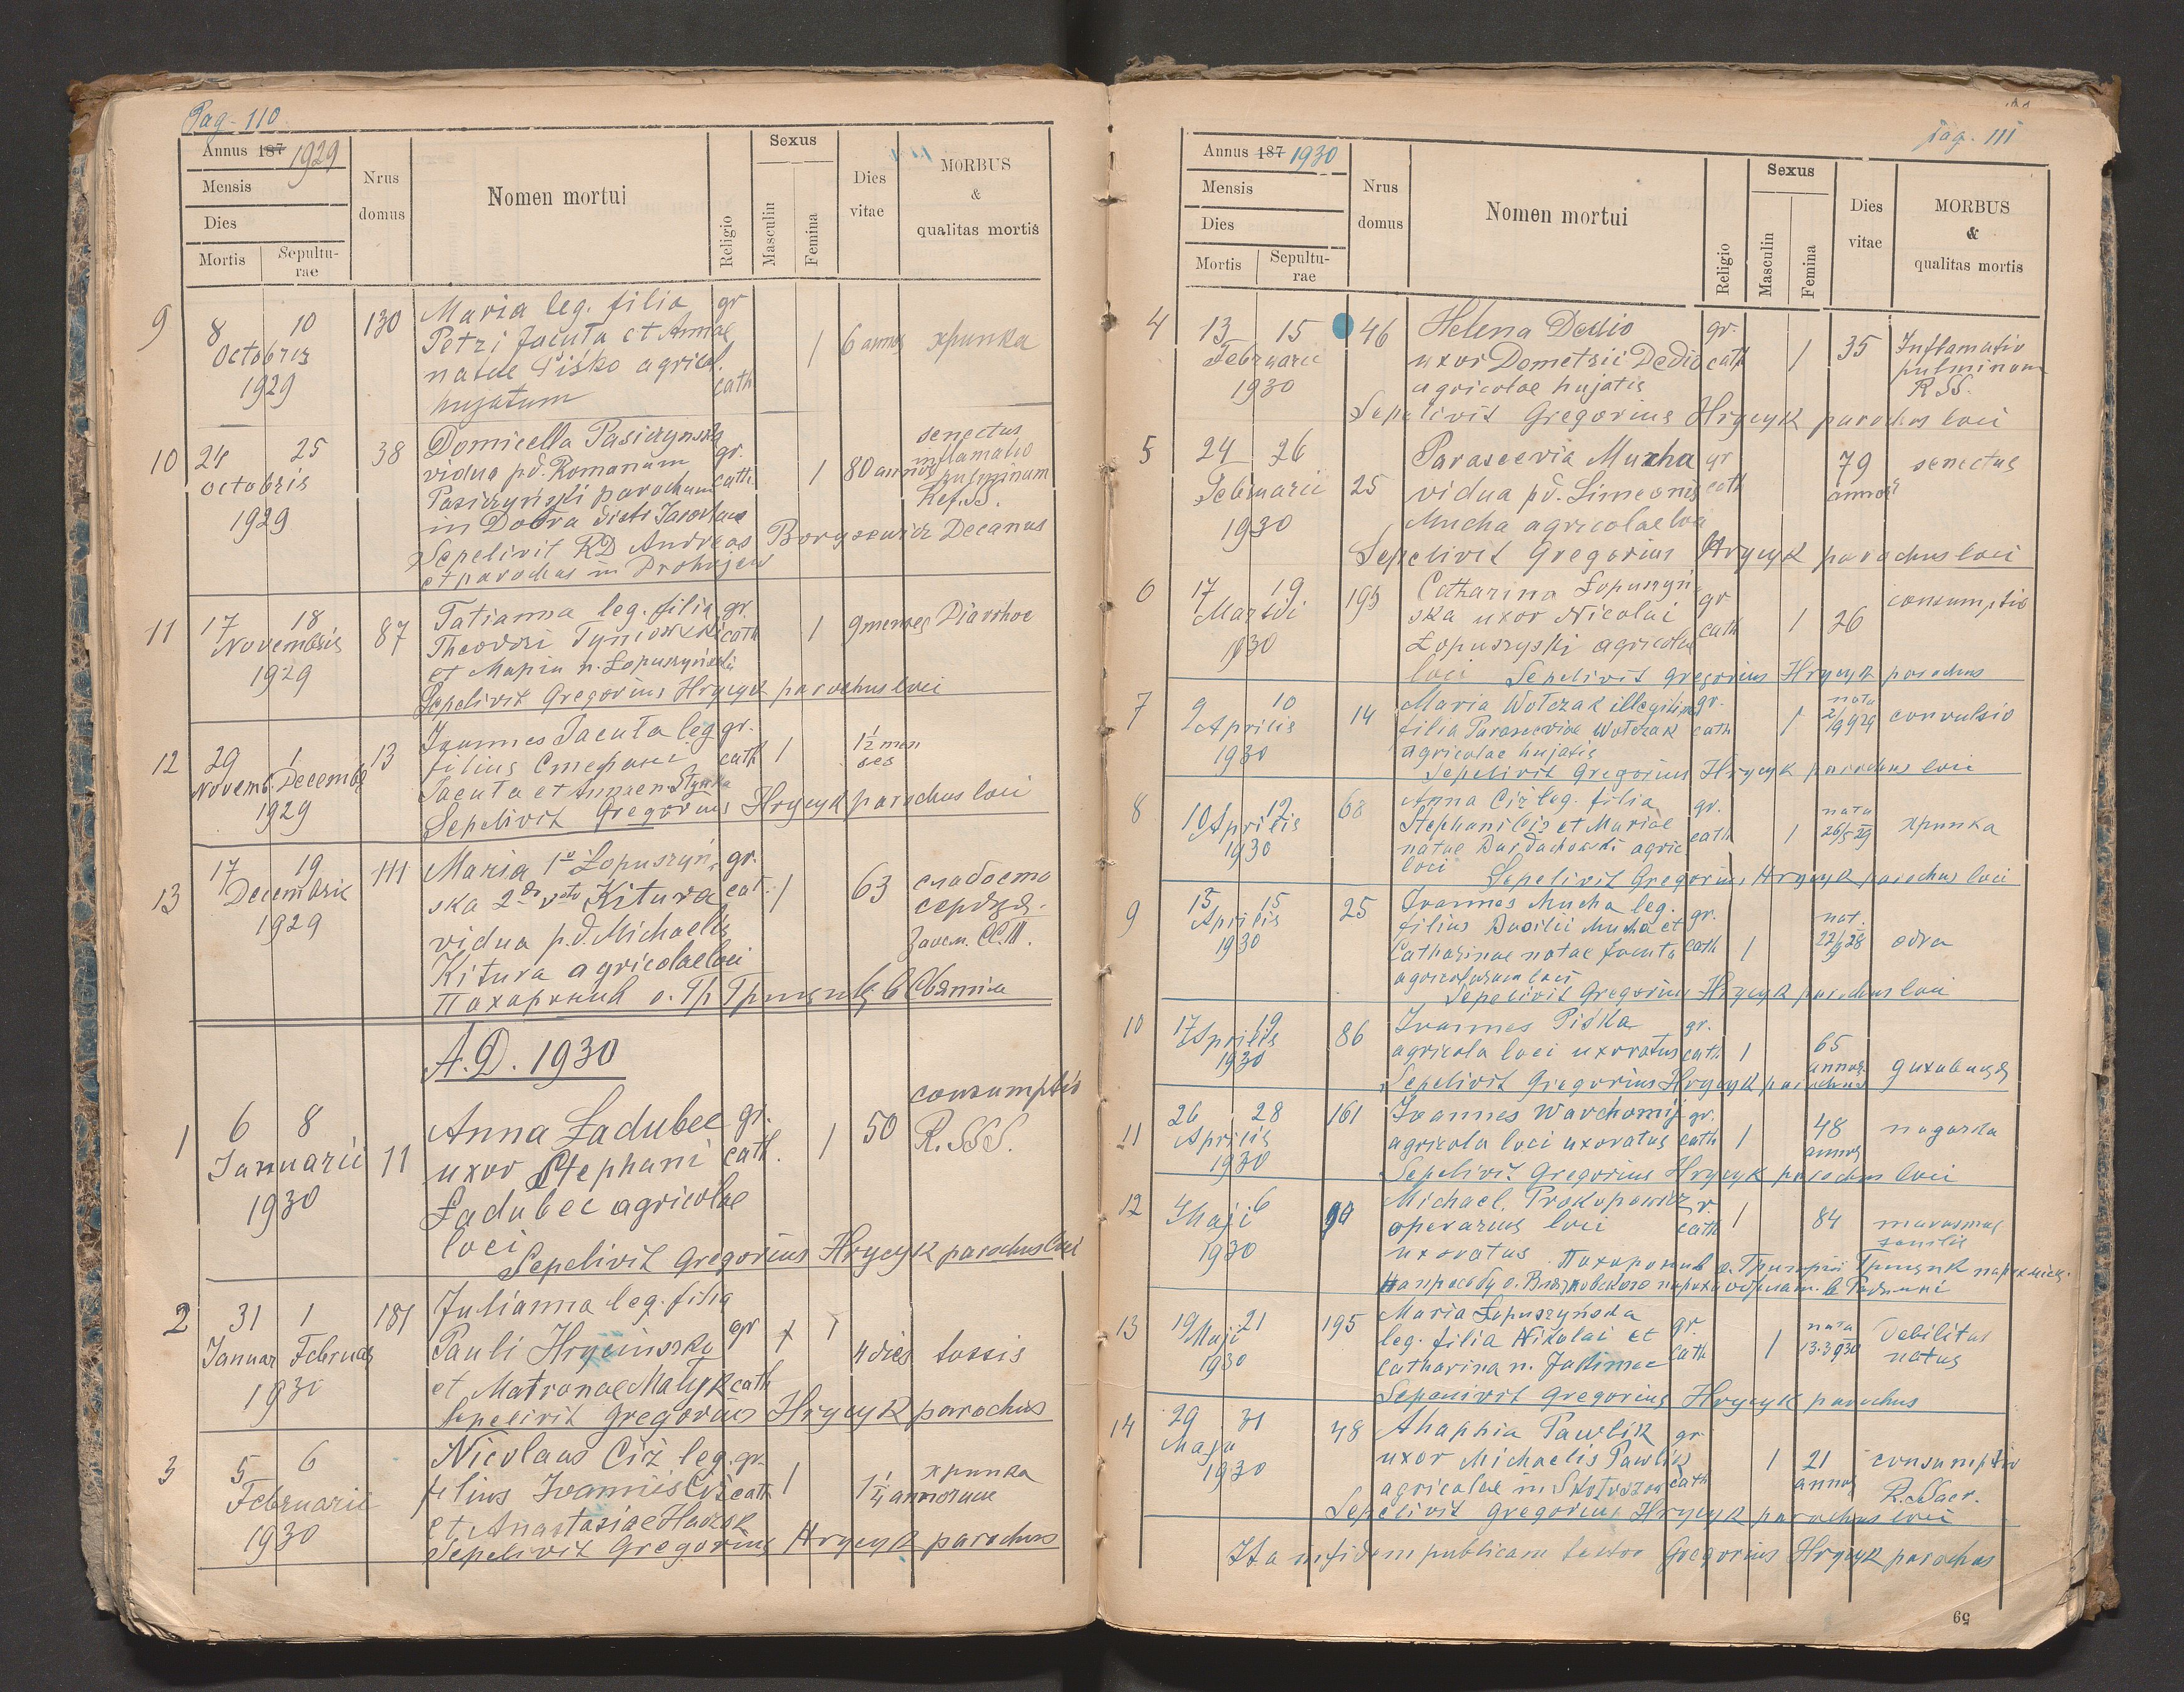 Pag. 110
Annus 187 1929
Mensis
Dies
Mortis Sepultu-rae
Nrus domus
Nomen mortui
Religio
Sexus
Masculin
Femina
Dies vitae
MORBUS & qualitas mortis
9 8 10 130 Maria leg. filia gr
Octobris Petri Jacuta et Annae 1 6 annos хрипка
1929 natae Piśko agricol.
hujatum cath
10 24 25 38 Domicella Pasiczynska gr. senectus
octobris vidua p.d. Romanum cath. 1 80 annos inflamatio
1929 Pasiczyński parochum pulminum
in Dobra
Sepelivit RD Andreas Borysewicz Decanus
et parochus in
11 17 18 87 Tatianna leg. filia gr.
Novembris Theodori cath 1 9 menses Diarrhoe
1929 et Maria n. Łopuszyński
Sepelivit Gregorius Hrycyk parochus loci
12 29 1 13 Ioannes Jacuta leg gr.
Novemb. Decemb filius Стефані cath 1 1½ men
1929 Jacuta et Annae n. ses
Sepelivit Gregorius Hrycyk parochus loci
13 17 19 111 Maria 1º Łopuszyń- gr.
Decembris ska 2do voto Kitura cat. 1 63 слабость
1929 vidua p.d. Michaelis серця.
Kitura agricolae loci
Похоронив о. Гр Грицик
A.D. 1930
consumptio
1 6 8 11 Anna Ładubec gr.
Januarii uxor Stephani cath. 1 50 R.SSS.
1930 Ładubec agricolae
loci
Sepelivit Gregorius Hrycyk parochus loci
2 31 1 181 Julianna leg. filia
Januar Februar Pauli gr 4 dies tussis
1930 et Matronae Matyk cath
Sepelivit Gregorius Hrycyk parochus
3 5 6 Nicolaus Ciż leg. gr. хрипка
Februarii filius Ioannis Ciż cath 1 1¼ annorum
1930 et Anastasiae
Sepelivit Gregorius Hrycyk parochus
pag. 111
Annus 187 1930
Mensis
Dies
Mortis Sepultu-rae
Nrus domus
Nomen mortui
Religio
Sexus
Masculin
Femina
Dies vitae
MORBUS & qualitas mortis
4 13 15 46 Helena Dedio gr.
Februarii uxor Demetrii Dedio cath 1 35 Inflamatio
1930 agricolae hujatis pulminum
R.SS.
Sepelivit Gregorius Hrycyk parochus loci
5 24 26 Parascevia Mucha gr 79 senectus
Februarii 25 vidua p.d. Simeonis cath annos
1930 Mucha agricolae loci
Sepelivit Gregorius Hrycyk parochus loci
6 17 19 195 Catharina Łopuszyń- gr consumptio
Martii ska uxor Nicolai cath 1 26
1930 Łopuszyski agricolae
loci Sepelivit Gregorius Hrycyk parochus
7 9 10 14 Maria Wołczak illegitima gr. nata
Aprilis filia Parasceviae Wołczak cath 1 convulsio
1930 agricolae hujatis
Sepelivit Gregorius Hrycyk parochus loci
8 10 12 68 Anna Ciż leg. filia gr. nata
Aprilis Stephani Ciż et Mariae cath 1 26/5 29 хрипка
1930 natae agric
loci Sepelivit Gregorius Hrycyk parochus loci
9 15 15 25 Ioannes Mucha leg. gr. nat.
Aprilis filius Basilii Mucha et odra
1930 Catharinae natae Jacuta cath 1
agricolarum loci
Sepelivit Gregorius Hrycyk parochus loci
10 17 19 86 Ioannes Piśka gr.
Aprilis agricola loci uxoratus cath 1 65 annos дихавиця
1930
Sepelivit Gregorius Hrycyk parochus
11 26 28 161 Ioannes Warchomij gr.
Aprilis agricola loci uxoratus cath 1 48 annos
1930
Sepelivit Gregorius Hrycyk parochus loci
12 4 6 Michael Prokopowicz gr.
Maji operarius loci cath 1 84 marasmus senilis
1930 uxoratus Похоронив о. Григорій Грицик
13 19 21 195 Maria Łopuszyńska gr. nata
Maji leg. filia Nikolai et cath 1 13.3 930 Debilitas
1930 Catharina n. natus
Sepelivit Gregorius Hrycyk parochus
14 29 31 48 Ahaphia Pawlik gr.
Maju uxor Michaelis Pawlik 1 21 annos consumptio
1930 agricolae in cath R. Sacr.
Sepelivit Gregorius Hrycyk parochus loci
Ita in fidem publicam testor Gregorius Hrycyk parochus
59